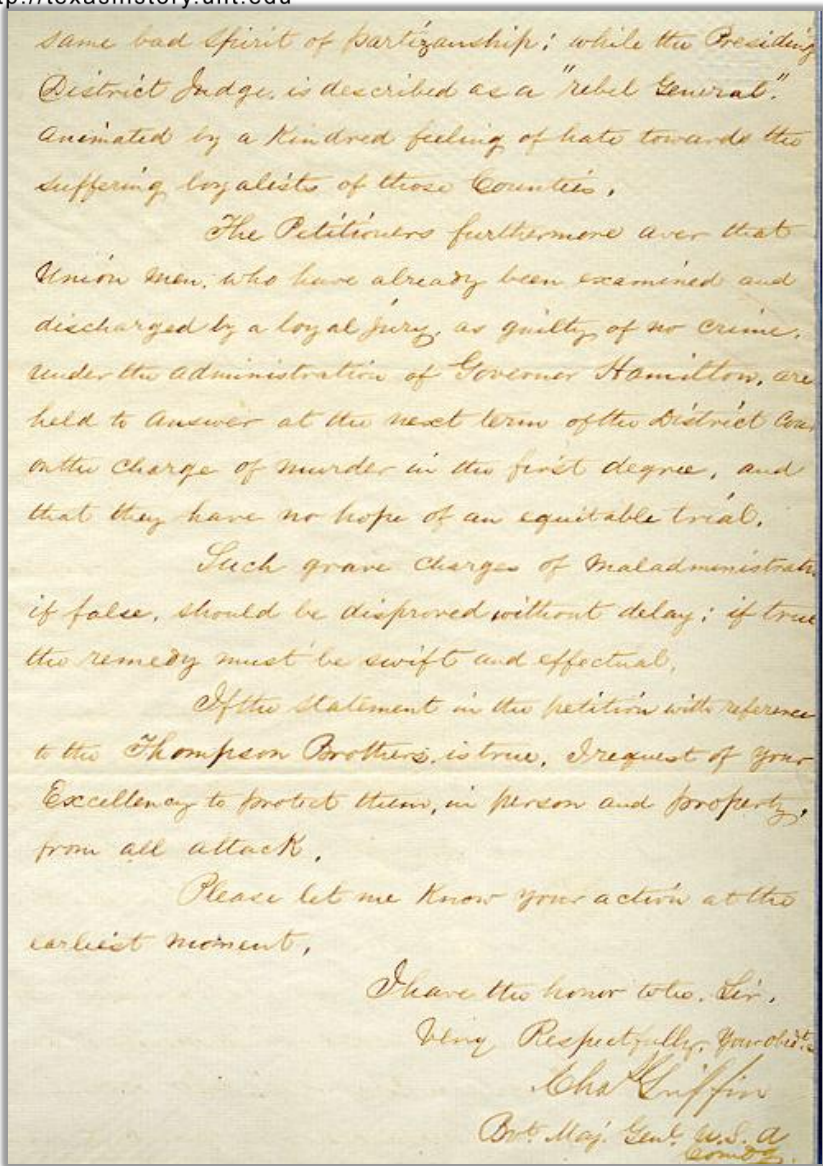 tp://texashistory.unt.edu
same bad spirit of partizanship; while the Presiding
District Judge, is described as a "rebel General".
animated by a Kindred feeling of hate towards the
suffering loyalists of those Counties.
The Petitioners furthermore aver that
Union men, who have already been examined and
discharged by a loyal jury, as guilty of no crime,
under the administration of Governor Hamilton, are
held to answer at the next term of the District Cour
on the charge of murder in the first degree, and
that they have no hope of an equitable trial.
Such grave charges of Maladministratio
if false, should be disproved without delay; if true
the remedy must be swift and effectual.
If the statement in the petition with reference
to the Thompson Brothers, is true, I request of your
Excellency to protect them, in person and property,
from all attack.
Please let me Know your action at the
earliest moment.
I have the honor to be, Sir,
Very Respectfully, Your obdt.
Chas Griffin
Bvt. Maj. Genl. U.S. A
Comdg.